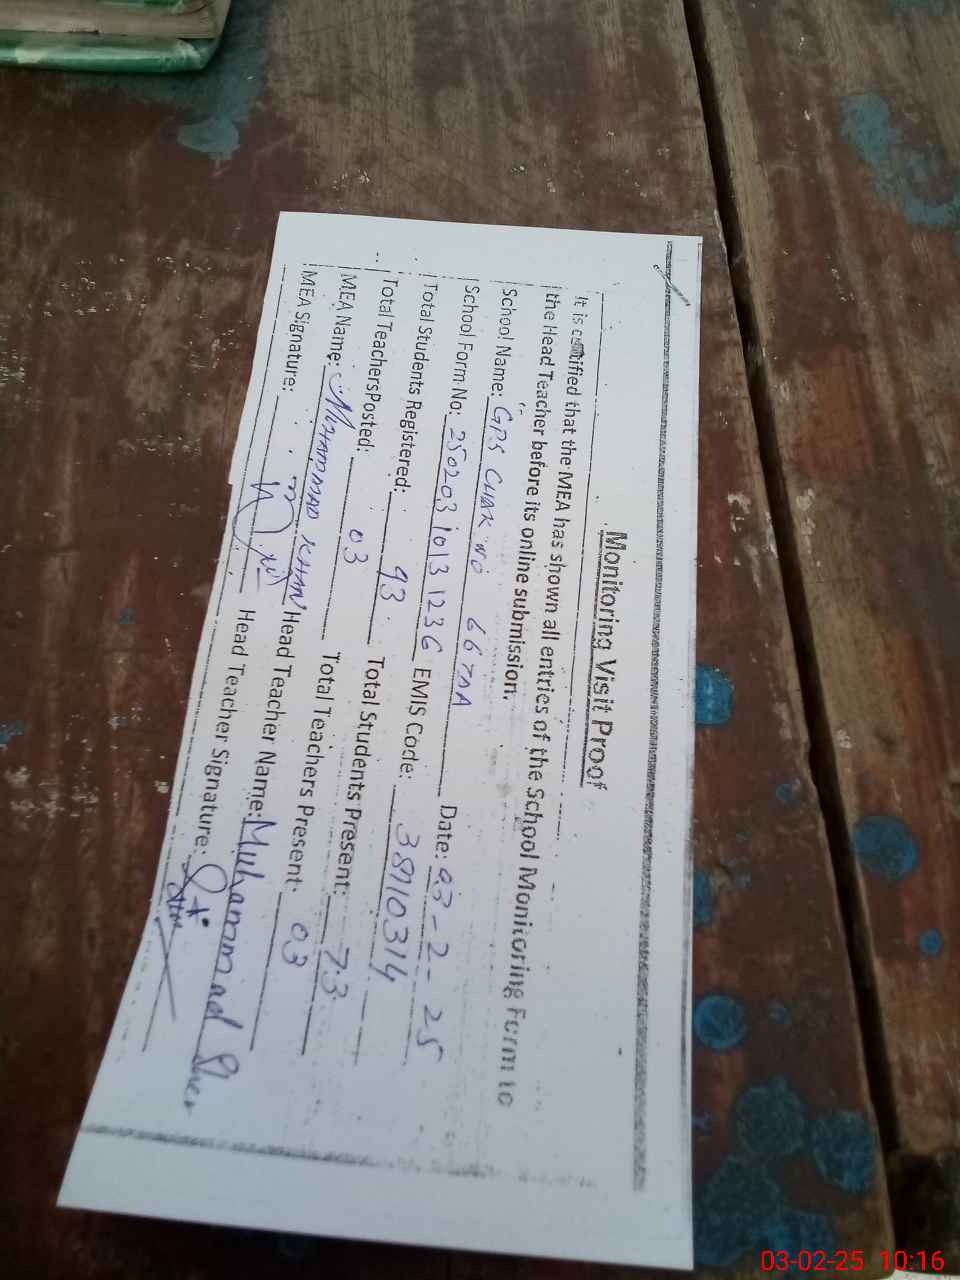 Monitoring Visit Proof
It is certified that the MEA has shown all entries of the School Monitoring Form to
the Head Teacher before its online submission.
School Name: GPS CHAK NO 66 TDA Date: 03-2-25
School Form No: 250203 1013 1236 EMIS Code: 38710314
Total Students Registered: 93 Total Students Present: 73
Total Teachers Posted: 03 Total Teachers Present: 03
MEA Name: MUHAMMAD KHAN Head Teacher Name: Muhammad Sher
MEA Signature: Head Teacher Signature:
03-02-25 10:16